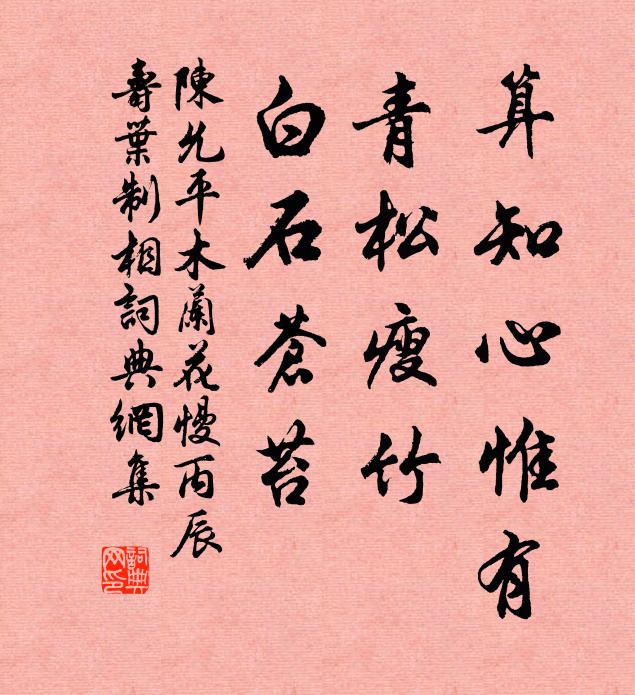 算知心惟有
青松瘦竹
白石蒼苔
陳允平木蘭花慢丙辰
壽葉制相詞典網集
詞典網印